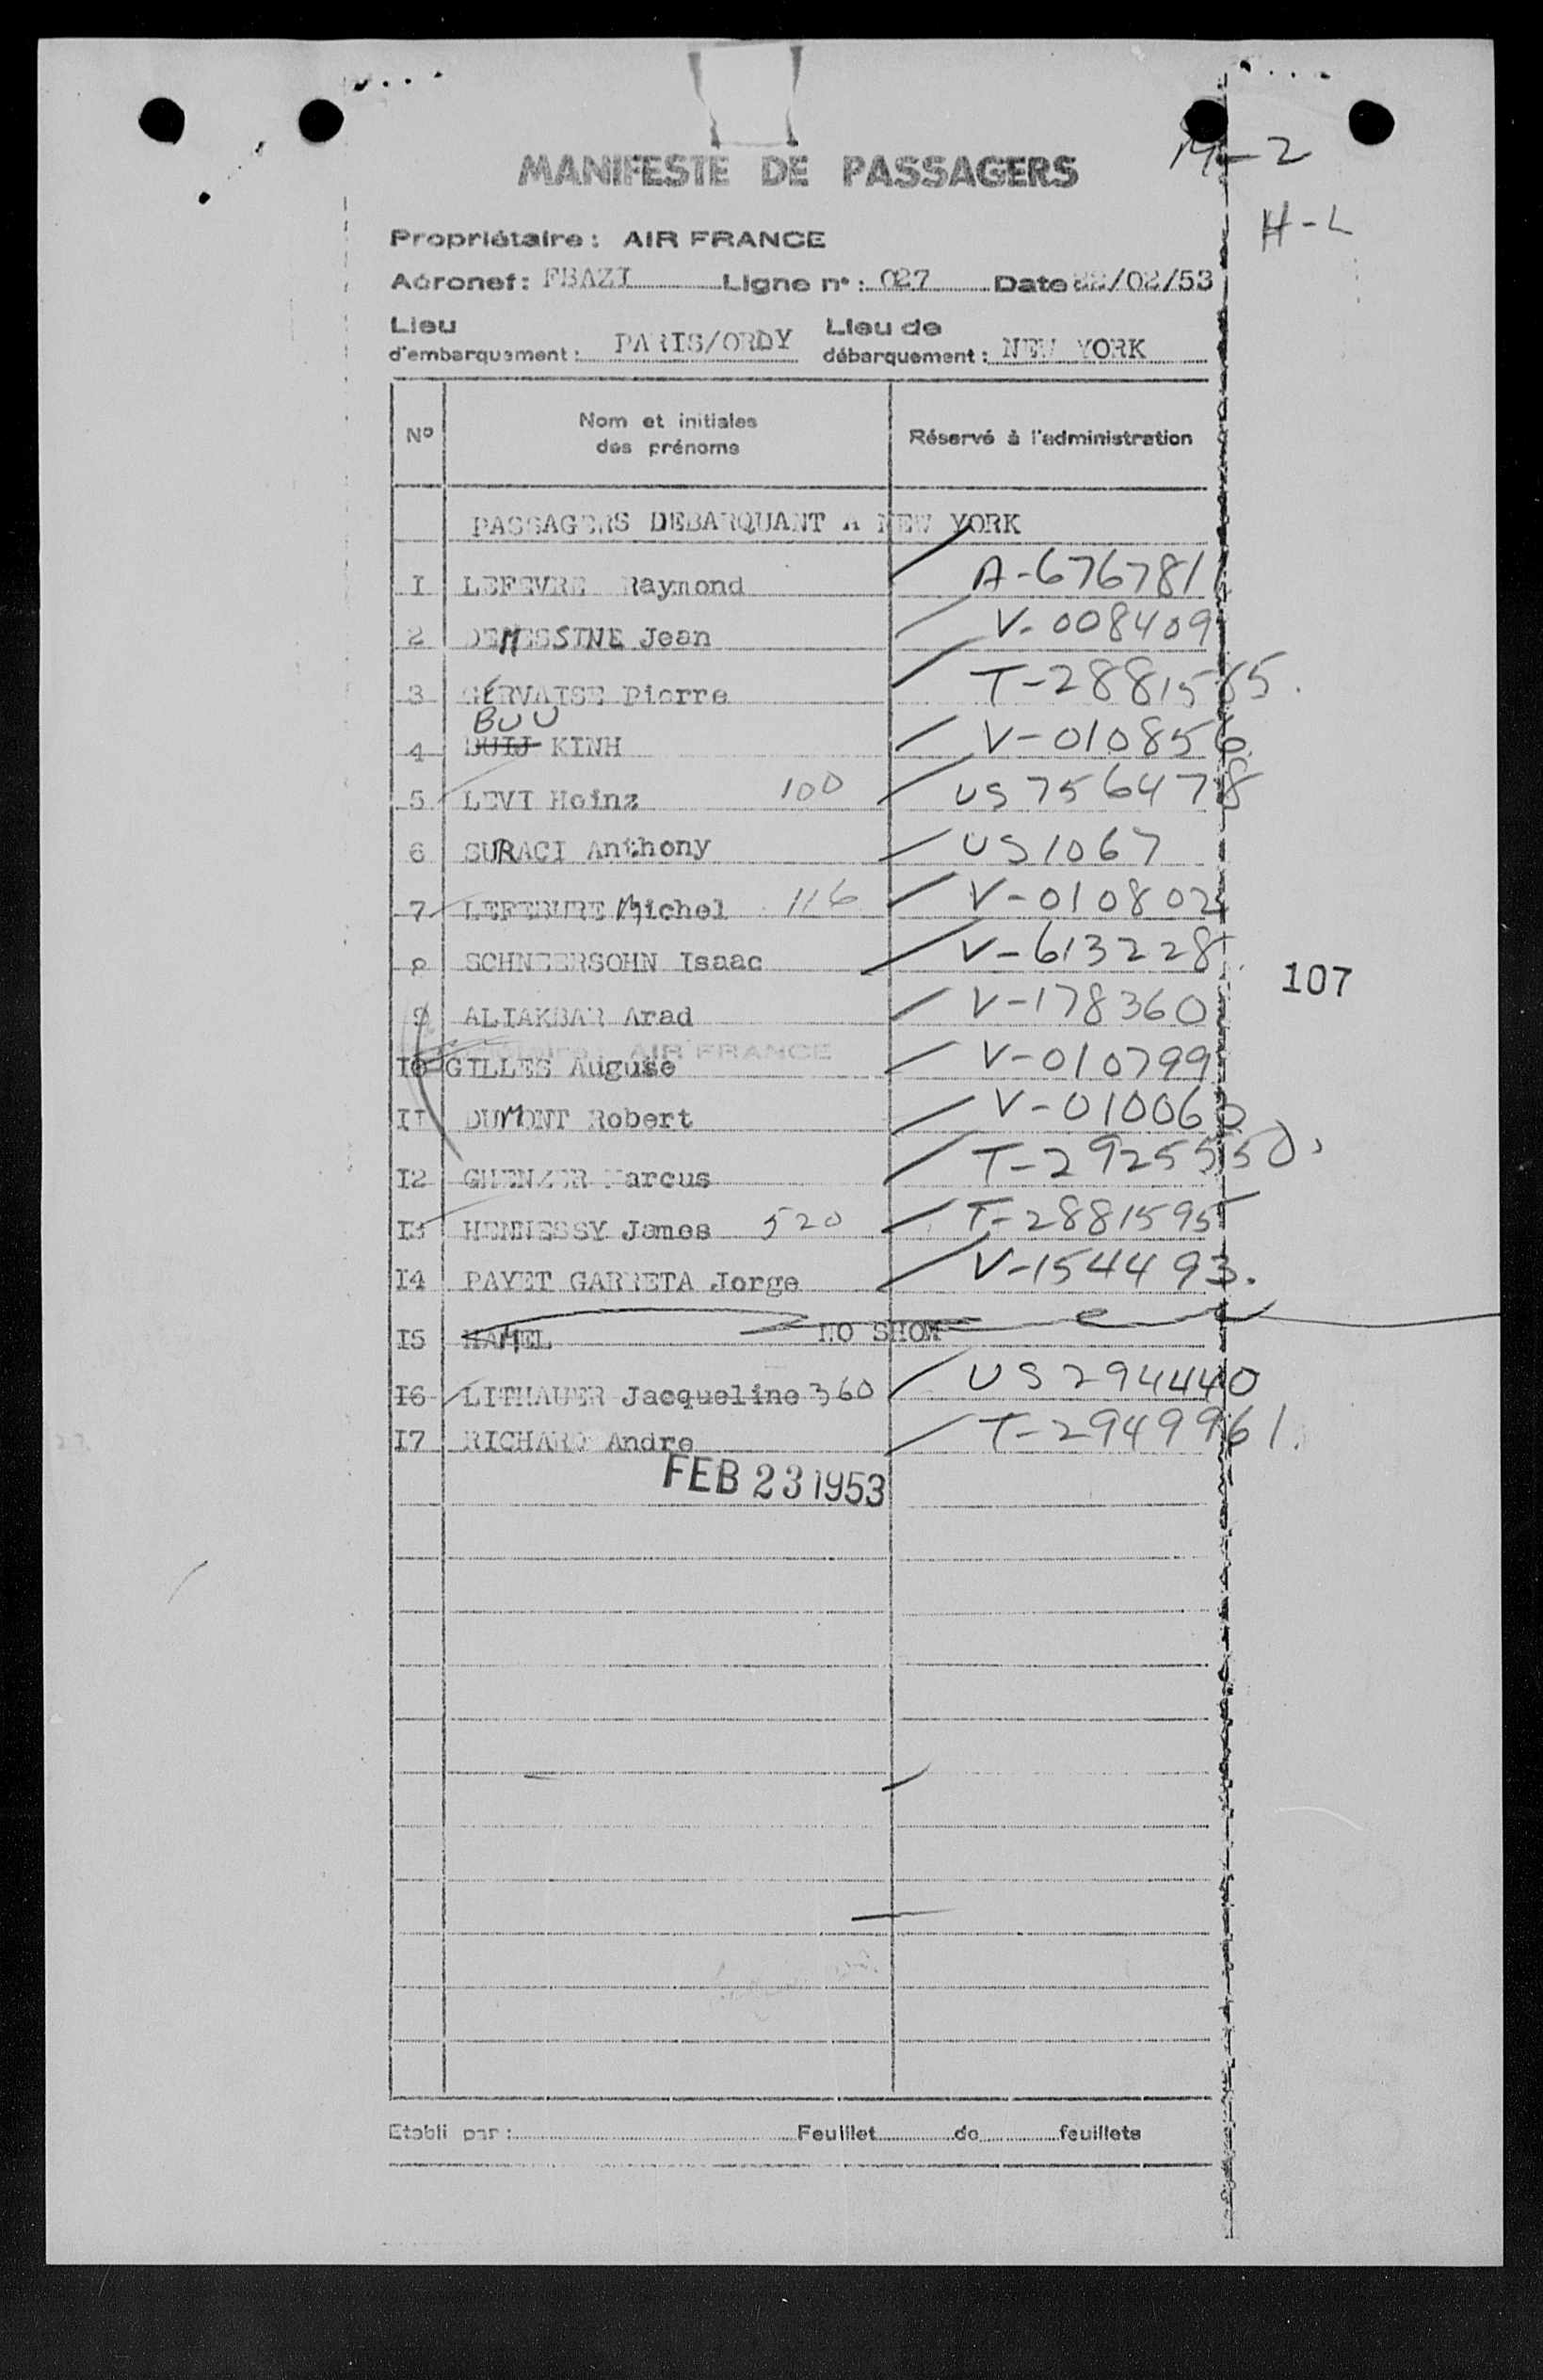 M-2
MANIFESTE DE PASSAGERS
H-L
Propriétaire: AIR FRANCE
Aéronef: FBAZI Ligne n°: 027 Date 22/02/53
Lieu d'embarquement: PARIS/ORDY Lieu de débarquement: NEW YORK
N° Nom et initiales des prénoms Réservé à l'administration
PASSAGERS DEBARQUANT A NEW YORK
I LEFEVRE Raymond A-6767811
2 DEMESSINE Jean V-008409
3 GERVAISE Pierre T-2881585.
BUU
4 DUIJ KINH V-010856
5 LEVI Heinz 100 US 7556478
6 SURACI Anthony US 1067
7 LEFEBURE Michel 116 V-010802
8 SCHNEERSOHN Isaac V-613228
107
9 ALIAKBAR Arad V-178360
AIR FRANCE
I0 GILLES Auguse V-010799
II DUMONT Robert V-010060
I2 Marcus T-2925550
I3 HENNESSY James 520 T-2881595
I4 PAYET GARRETA Jorge V-1544493.
I5 HAMEL NO SHOW
I6 LITHAUER Jacqueline 360 US 294440
I7 RICHARD Andre T-2949961.
FEB 23 1953
Etabli par: Feuillet de feuillets